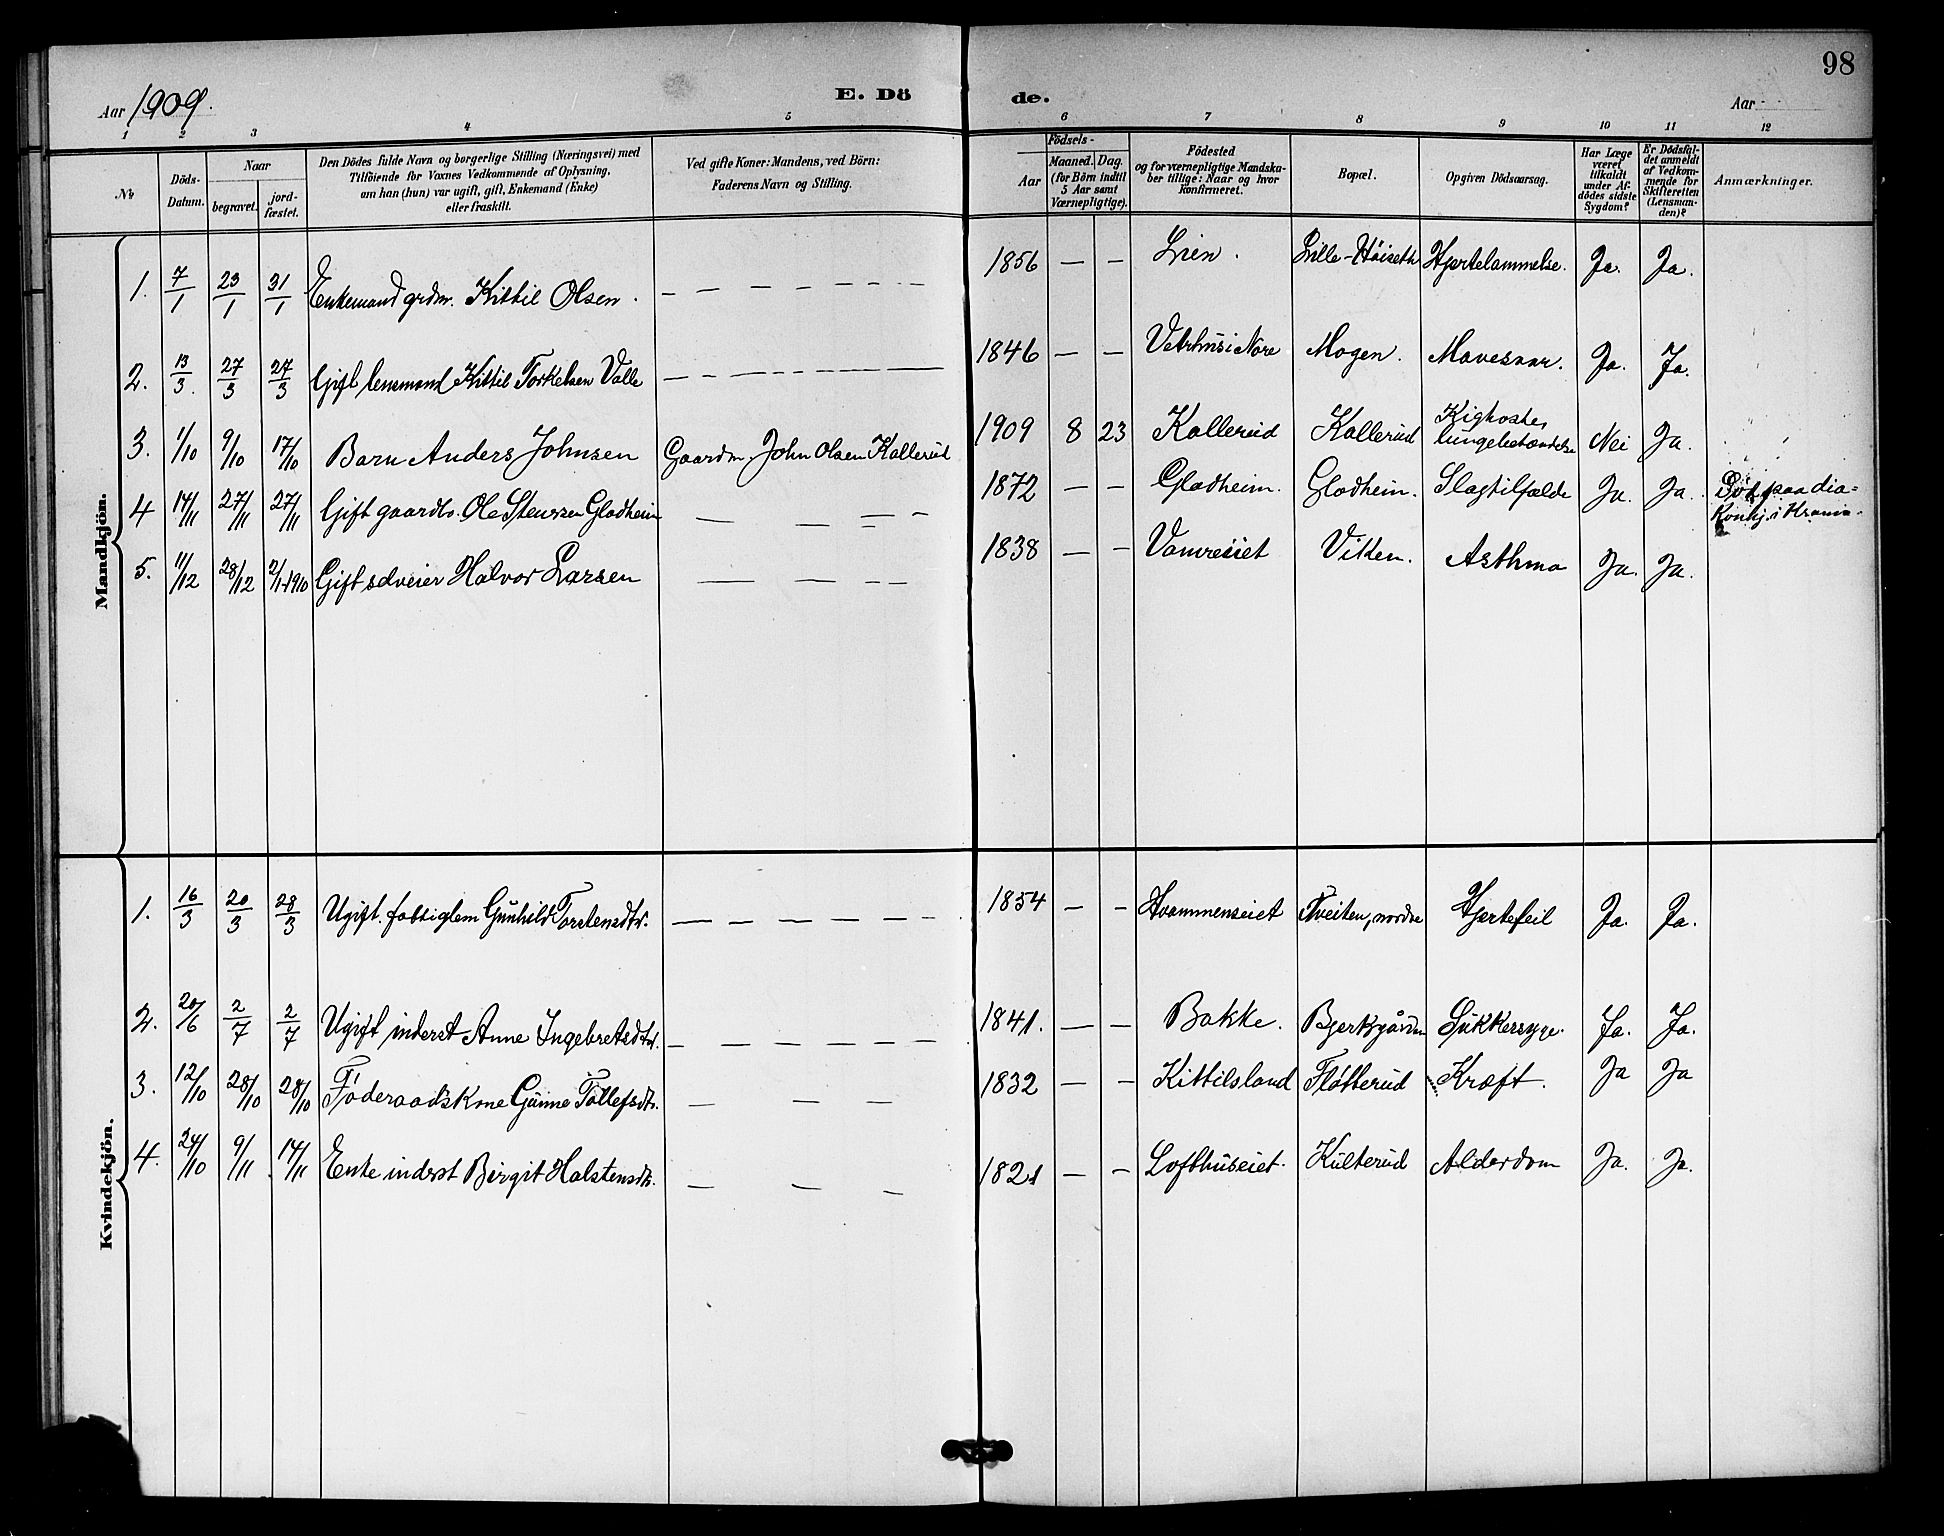 98
Aar 1909. E. Dö de. Aar
1 2 3 4 5 6 7 8 9 10 11 12
No Döds-Datum. Naar begravet. jordfæstet. Den Dödes fulde Navn og borgerlige Stilling (Næringsvei) med Tilföiende for Voxnes Vedkommende af Oplysning, om han (hun) var ugift, gift, Enkemand (Enke) eller fraskilt. Ved gifte Koner: Mandens, ved Börn: Faderens Navn og Stilling. Födsels- Aar Maaned. Dag. (for Börn indtil 5 Aar samt Værnepligtige). Födested og for værnepligtige Mandskaber tillige: Naar og hvor konfirmeret. Bopæl. Opgiven Dödsaarsag. Har Læge været tilkaldt under Afdödes sidste Sygdom? Er Dödsfaldet anmeldt af Vedkommende for Skifteretten (Lensmanden)? Anmærkninger.
Mandkjön.
1. 7/1 23/1 31/1 Enkemand grdm. Kittil Olsen. — — — — — — 1856 — — Lien. Lille-Höiseth Hjertelammelse. Ja. Ja.
2. 13/3. 27/3 27/3 Gift lensmand Kittil Torkelsen Valle — — — — — — 1846 — — Vetrhus i Nore Mogen. Mavesaar. Ja. Ja.
3. 1/10 9/10 17/10 Barn Anders Johnsen Gaardm. John Olsen Kallerud 1909 8 23 Kallerud Kallerud Kighoste, lungebetændelse Nei Ja.
4 14/11 27/11 27/11 Gift gaardbr. Ole Stenersen Gladheim — — — — 1872 — — Gladheim. Gladheim. Slagtilfælde Ja. Ja. paa dia=
5. 11/12 28/12 2/1-1910 Gift selveier Halvor Larsen — — — — 1838 — — Viken. Asthma Ja. Ja.
Kvindekjön.
1. 16/3 20/3 28/3 Ugift. fattiglem Gunhild Torstensdtr. — — — — — — 1854 — — Hvammenseiet Tveiten, nordre Hjertefeil Ja. Ja.
2. 20/6 2/7 2/7 Ugift inderst Anne Ingebretsdtr. — — — — — — 1841. — — Bakke. Bjerkgården Sukkersyge. Ja. Ja.
3. 12/10 28/10 28/10 Föderaadskone Gunne Tollefsdtr. — — — 1832 — — Kittilsland Fløtterud Kræft. Ja Ja
4. 24/10 9/11 14/11 Enke inderst Birgit Halstensdtr. — — — 1821 — — Lofthuseiet. Kulterud Alderdom Ja. Ja.